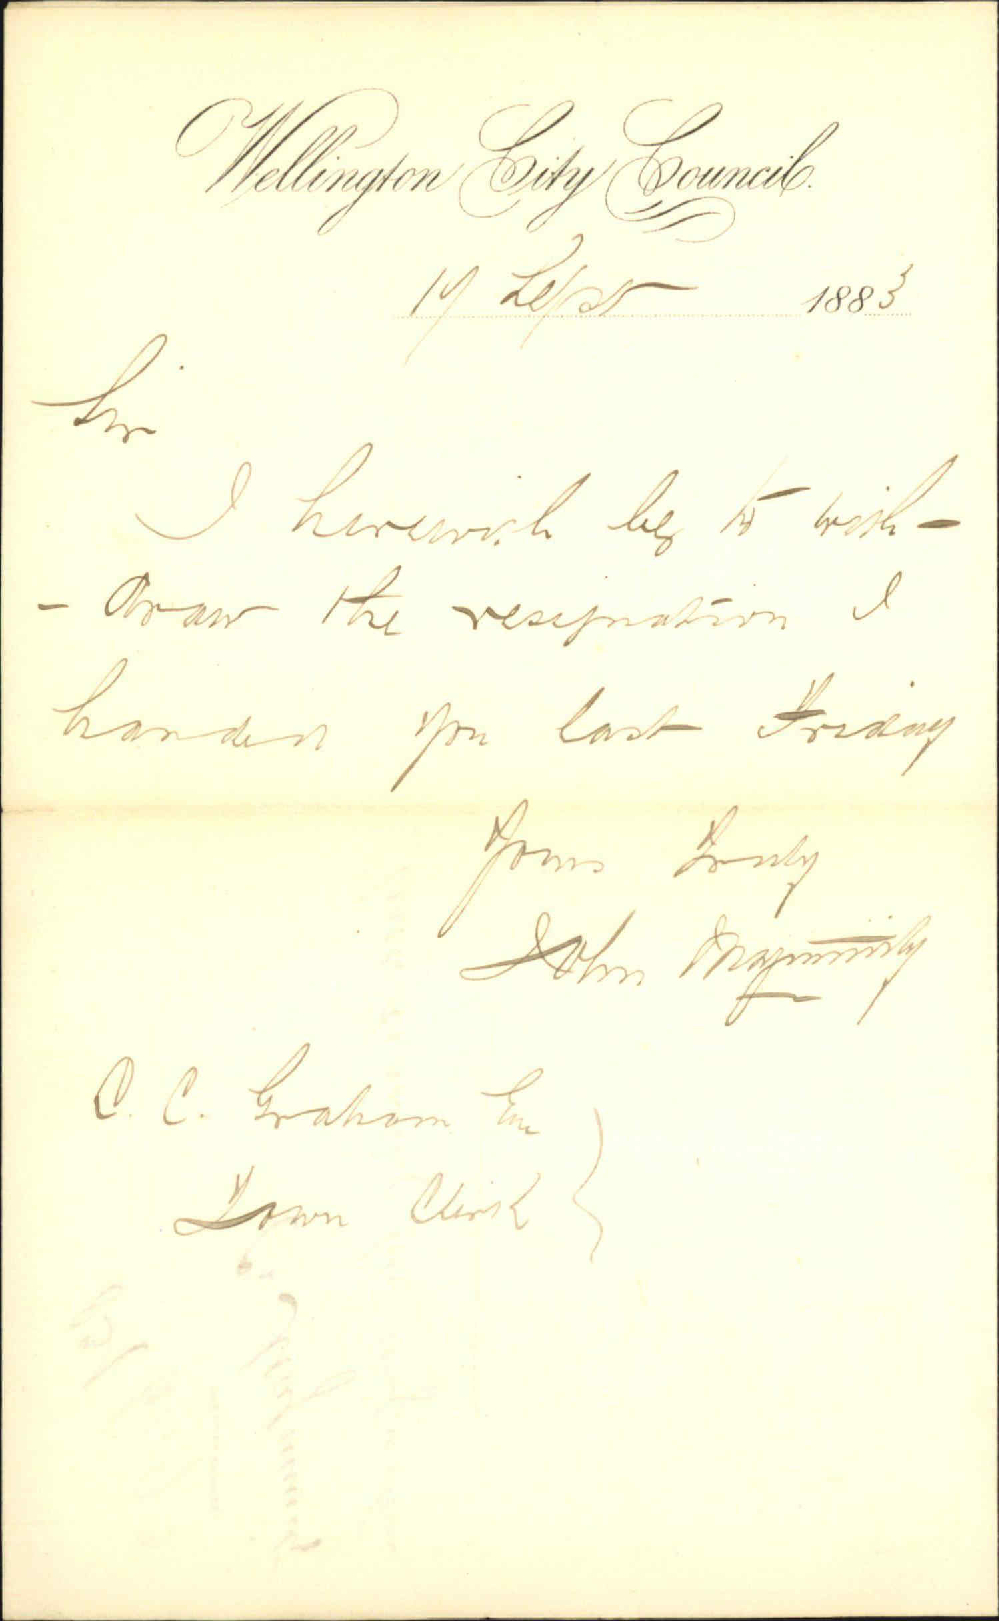 Wellington City Council.
Sept 1883
Sir
I herewith beg to with-
- draw the resignation I
handed you last Friday
Yours Truly
John Maginnity
C. C. Graham Esq
Town Clerk